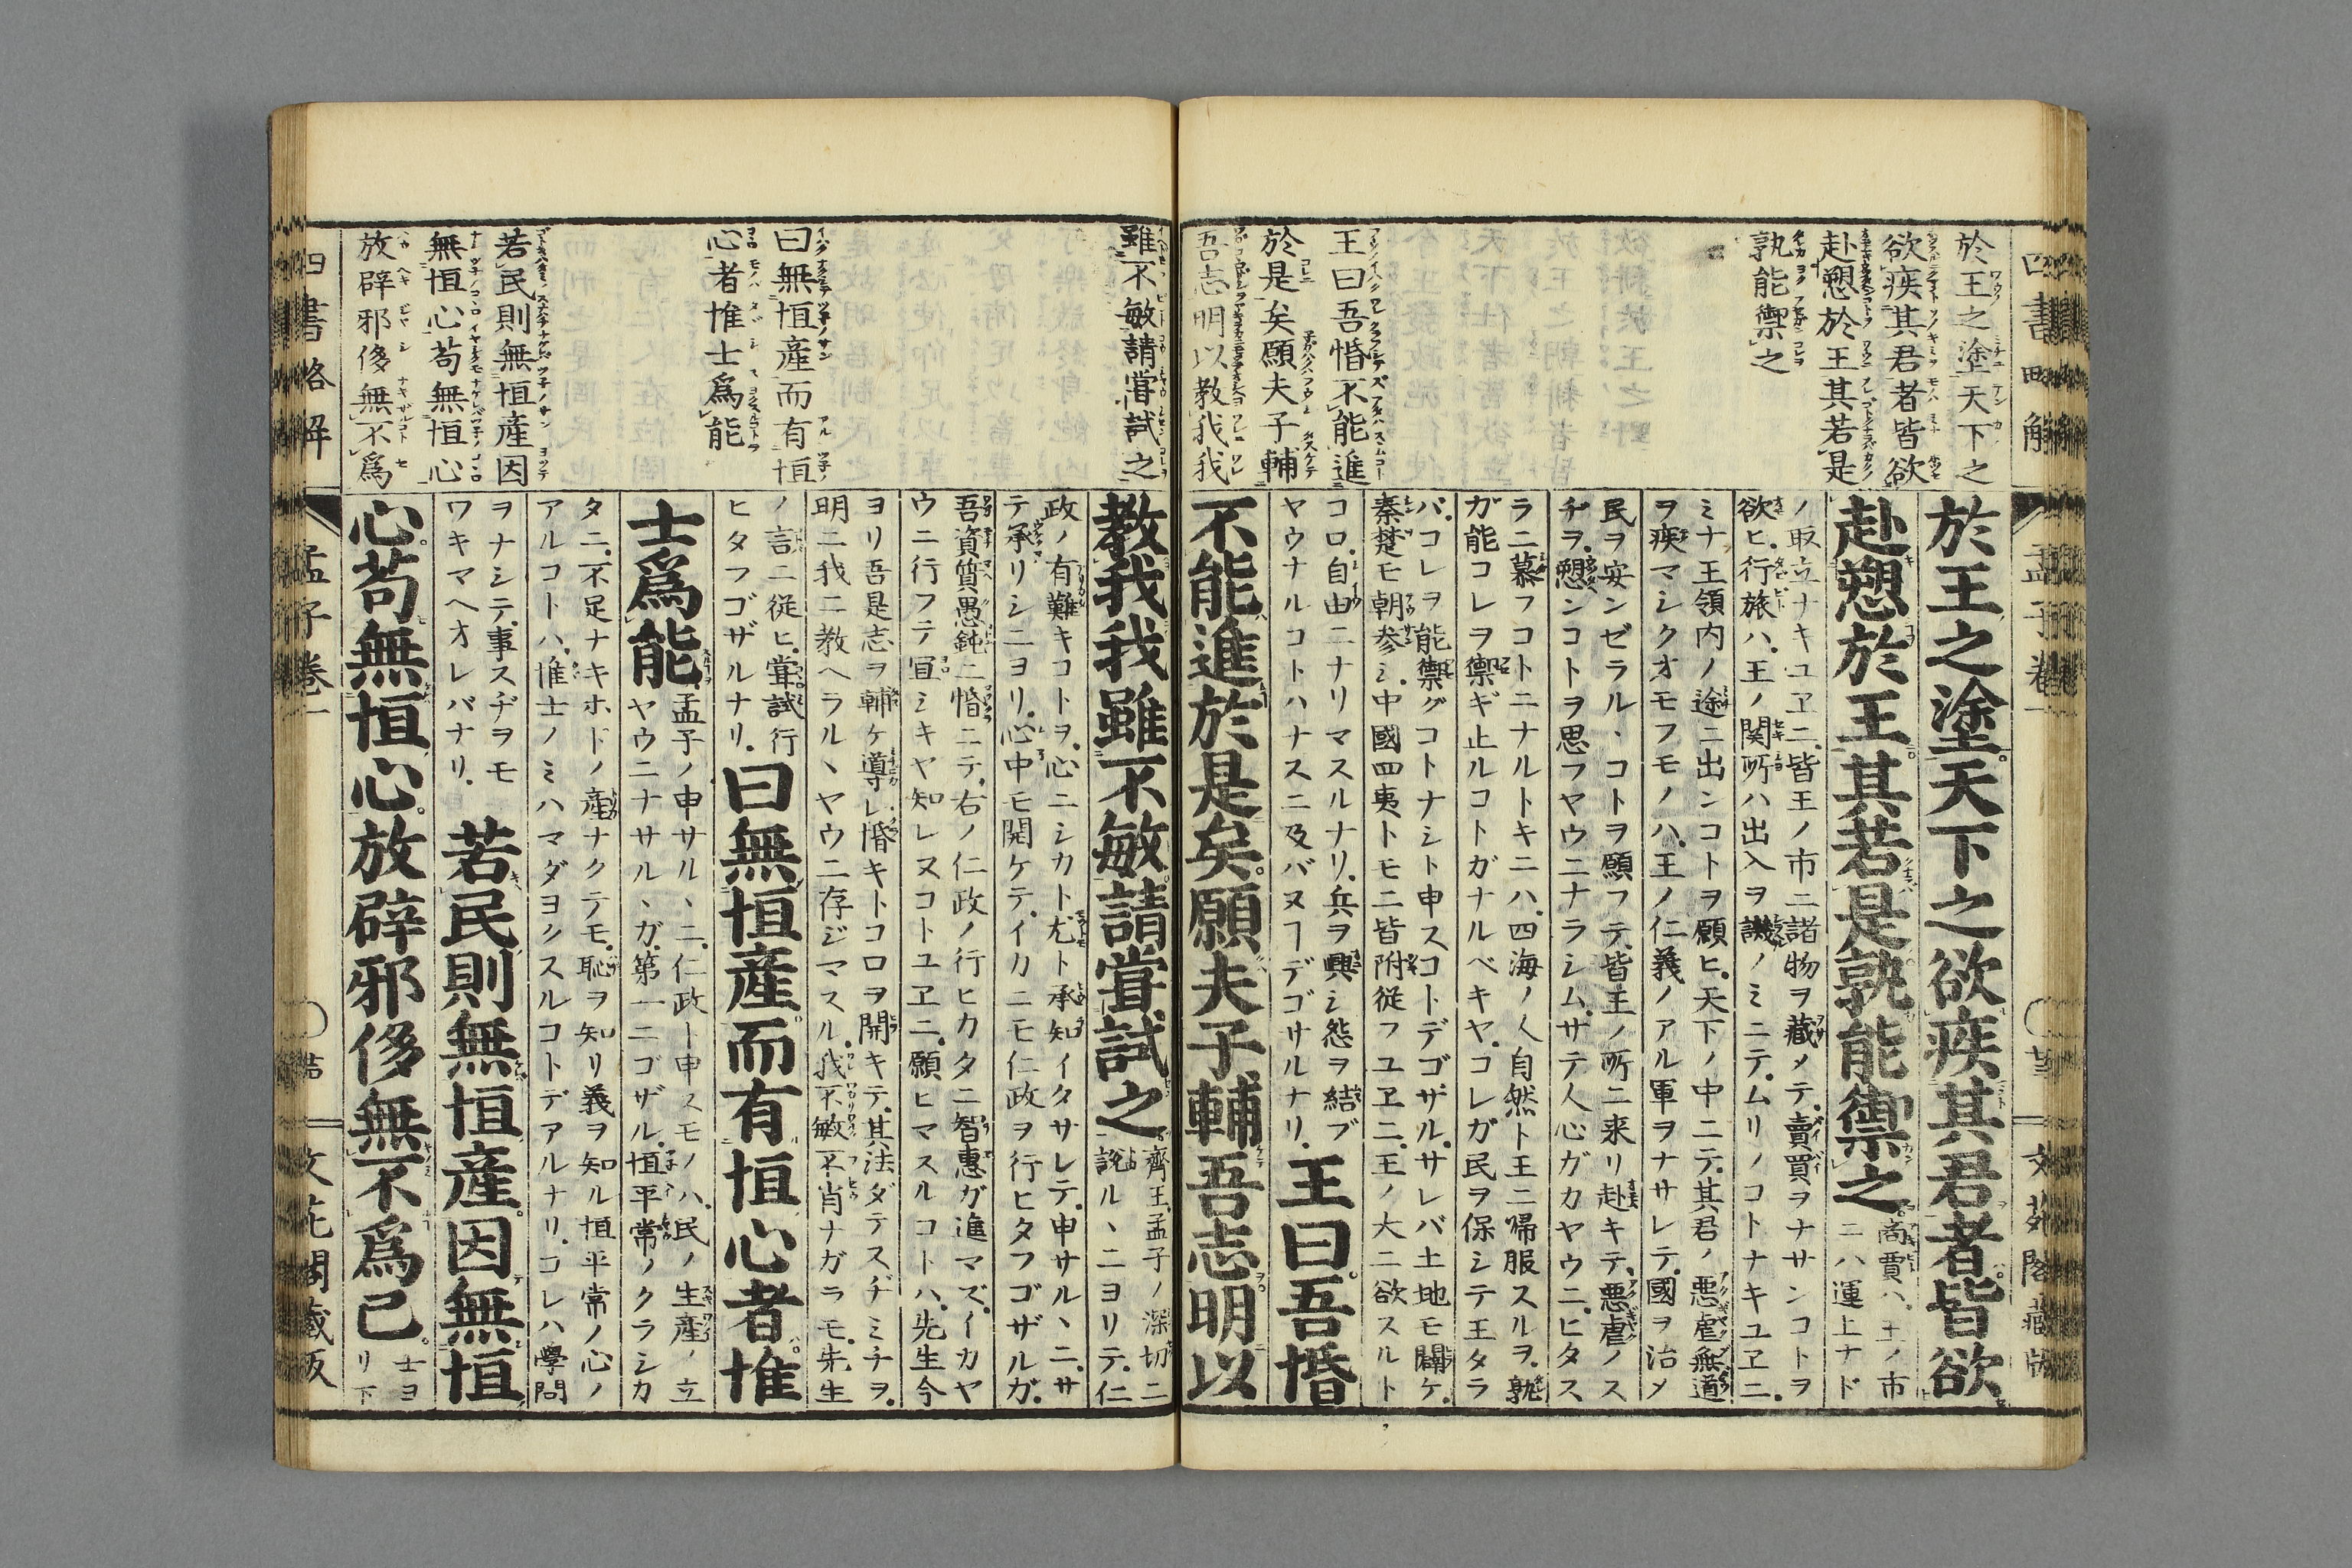 四書略解
孟子卷一
於王之塗天下之
欲疾其君者皆欲
赴愬於王其若是
孰能禦之
王曰吾惛不能進
於是矣願夫子輔
吾志明以教我我
於王之塗天下之欲疾其君者皆欲
赴愬於王其若是孰能禦之
商賈ハ王ノ市
ニハ運上ナド
ノ取立ナキユヱニ皆王ノ市ニ諸物ヲ藏メテ賣買ヲナサンコトヲ
欲ヒ行旅ハ王ノ関所ハ出入ヲ譏ノミニテムリノコトナキユヱニ
ミナ王領内ノ途ニ出ンコトヲ願ヒ天下ノ中ニテ其君ノ悪虐無道
ヲ疾マシクオモフモノハ王ノ仁義ノアル軍ヲナサレテ國ヲ治メ
民ヲ安ンゼラルヽコトヲ願フテ皆王ノ所ニ来リ赴キテ悪虐ノス
ヂヲ愬ンコトヲ思フヤウニナラシムサテ人心ガカヤウニヒタス
ラニ慕フコトニナルトキニハ四海ノ人自然ト王ニ帰服スルヲ孰
ガ能コレヲ禦ギ止ルコトガナルベキヤコレガ民ヲ保シテ王タラ
バコレヲ能禦グコトナシト申スコトデゴザルサレバ土地モ闢ケ
秦楚モ朝参シ中國四夷トモニ皆附従フユヱニ王ノ大ニ欲スルト
コロ自由ニナリマスルナリ兵ヲ興シ怨ヲ結ブ
ヤウナルコトハナスニ及バヌヿデゴサルナリ
王曰吾惛
不能進於是矣願夫子輔吾志明以
文苑閣藏版
雖不敏請嘗試之
曰無恒産而有恒
心者惟士爲能
若民則無恒産因
無恒心苟無恒心
放辟邪侈無不爲
教我我雖不敏請嘗試之
齊王孟子ノ深切ニ
說ルヽニヨリテ仁
政ノ有難キコトヲ心ニシカト尤ト承知イタサレテ申サルヽニサ
テ承リシニヨリ心中モ開ケテイカニモ仁政ヲ行ヒタフゴザルガ
吾資質愚鈍ニ惛ニテ右ノ仁政ノ行ヒカタニ智惠ガ進マズイカヤ
ウニ行フテ宜シキヤ知レヌコトユヱニ願ヒマスルコトハ先生今
ヨリ吾是志ヲ輔ケ導レ惛キトコロヲ開キテ其法ダテスヂミチヲ
明ニ我ニ教ヘラルヽヤウニ存ジマスル我不敏不肖ナガラモ先生
ノ言ニ従ヒ嘗試行
ヒタフゴザルナリ
曰無恒産而有恒心者惟
士爲能
孟子ノ申サルヽニ仁政ト申スモノハ民ノ生産ノ立
ヤウニナサルヽガ第一ニゴザル恒平常ノクラシカ
タニ不足ナキホドノ産ナクテモ恥ヲ知リ義ヲ知ル恒平常ノ心ノ
アルコトハ惟士ノミハマダヨシスルコトデアルナリコレハ學問
ヲナシテ事スヂヲモ
ワキマヘオレバナリ
若民則無恒産因無恒
心苟無恒心放辟邪侈無不爲已
士ヨ
リ下
四書略解
孟子卷一
文苑閣藏版